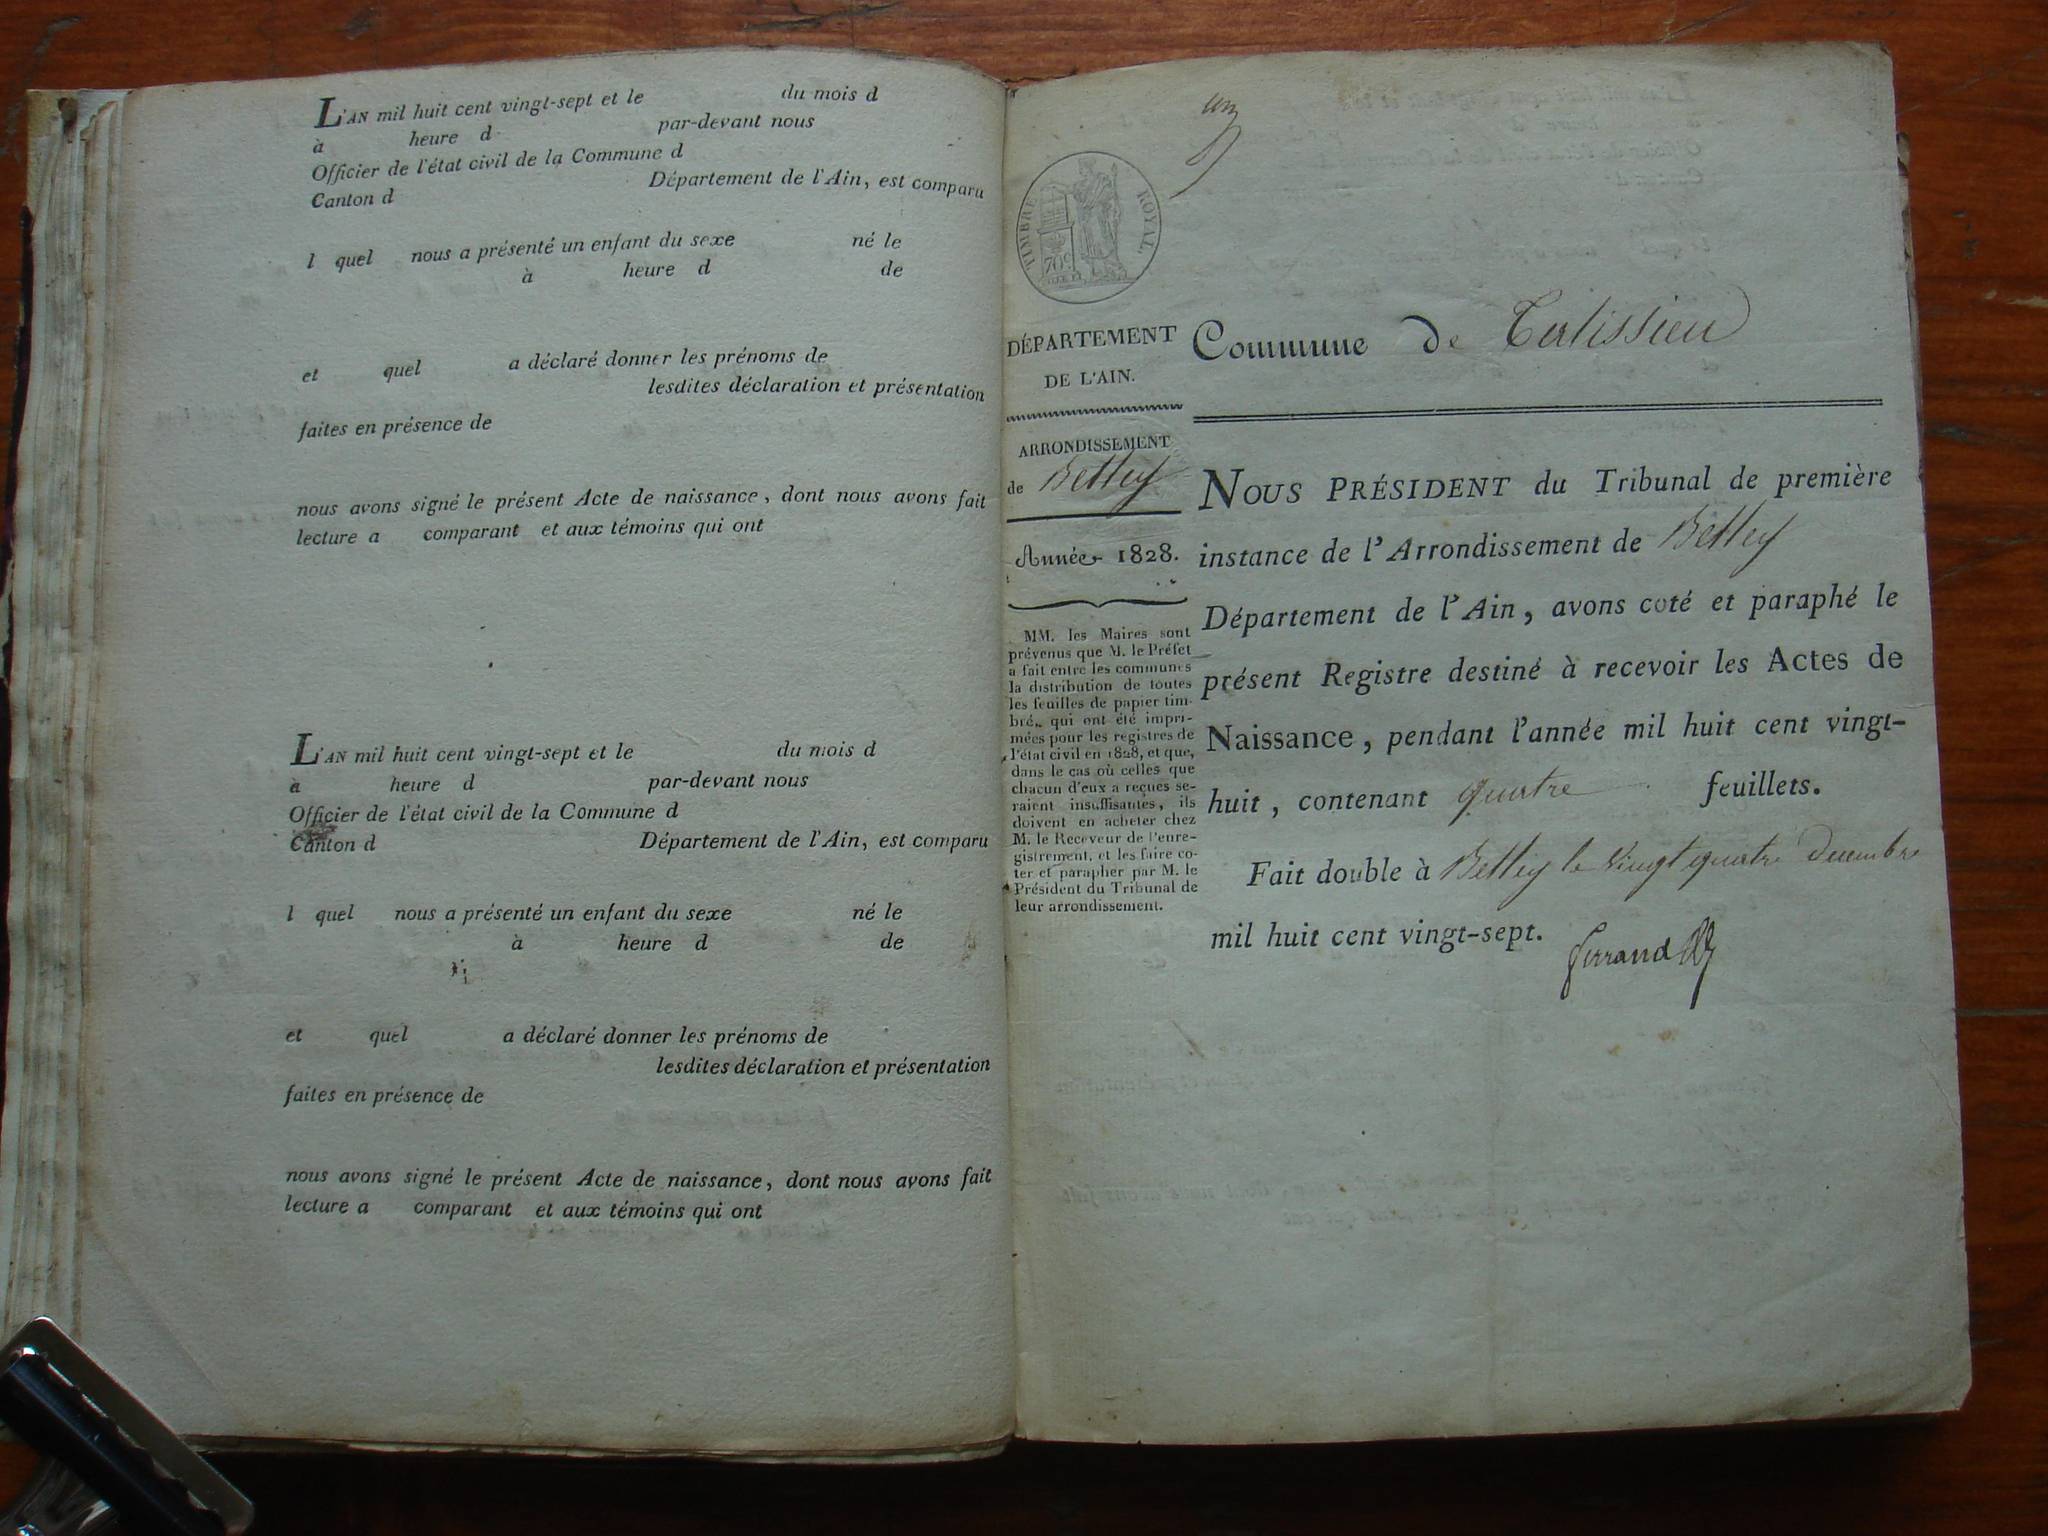 L'AN mil huit cent vingt-sept et le du mois d
à heure d par-devant nous
Officier de l'état civil de la Commune d
Canton d Département de l'Ain, est comparu
l quel nous a présenté un enfant du sexe né le
à heure d de
et quel a déclaré donner les prénoms de
lesdites déclaration et présentation
faites en présence de
nous avons signé le présent Acte de naissance, dont nous avons fait
lecture a comparant et aux témoins qui ont
L'AN mil huit cent vingt-sept et le du mois d
à heure d par-devant nous
Officier de l'état civil de la Commune d
Canton d Département de l'Ain, est comparu
l quel nous a présenté un enfant du sexe né le
à heure d de
et quel a déclaré donner les prénoms de
lesdites déclaration et présentation
faites en présence de
nous avons signé le présent Acte de naissance, dont nous avons fait
lecture a comparant et aux témoins qui ont
un
TIMBRE ROYAL
70c
DÉPARTEMENT
DE L'AIN.
ARRONDISSEMENT
de Belley
Année 1828.
MM. les Maires sont
prévenus que M. le Préfet
a fait entre les communes
la distribution de toutes
les feuilles de papier tim-
bré, qui ont été impri-
mées pour les registres de
l'état civil en 1828, et que,
dans le cas où celles que
chacun d'eux a reçues se-
raient insuffisantes, ils
doivent en acheter chez
M. le Receveur de l'enre-
gistrement, et les faire co-
ter et parapher par M. le
Président du Tribunal de
leur arrondissement.
Commune de Talissieu
NOUS PRÉSIDENT du Tribunal de première
instance de l'Arrondissement de Belley
Département de l'Ain, avons coté et paraphé le
présent Registre destiné à recevoir les Actes de
Naissance, pendant l'année mil huit cent vingt-
huit, contenant quatre feuillets.
Fait double à Belley le vingt quatre decembre
mil huit cent vingt-sept.
ferrand